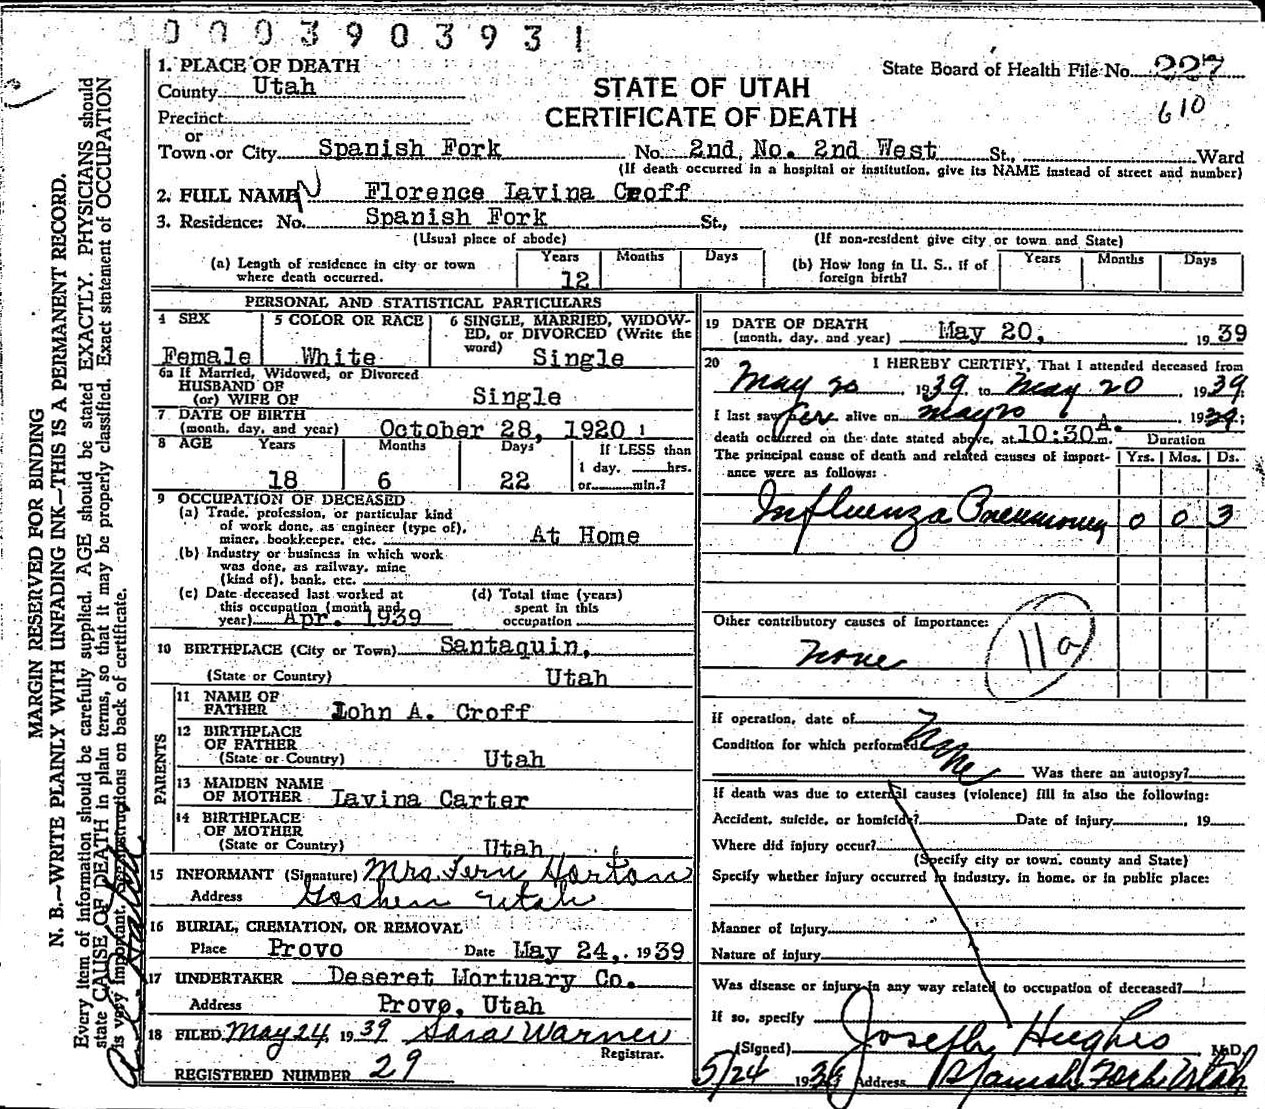 0003903931
1. PLACE OF DEATH
County Utah
Precinct
or
Town or City Spanish Fork No. 2nd No. 2nd West St., Ward
(If death occurred in a hospital or institution, give its NAME instead of street and number)
STATE OF UTAH
CERTIFICATE OF DEATH
State Board of Health File No. 227
610
2. FULL NAME Florence Lavina Croff
3. Residence: No. Spanish Fork St.,
(Usual place of abode) (If non-resident give city or town and State)
(a) Length of residence in city or town where death occurred. Years 12 Months Days
(b) How long in U. S., if of foreign birth? Years Months Days
PERSONAL AND STATISTICAL PARTICULARS
4 SEX Female
5 COLOR OR RACE White
6 SINGLE, MARRIED, WIDOWED, or DIVORCED (Write the word) Single
6a If Married, Widowed, or Divorced
HUSBAND OF
(or) WIFE OF Single
7 DATE OF BIRTH
(month, day, and year) October 28, 1920
8 AGE Years 18 Months 6 Days 22
If LESS than
1 day, hrs.
or min.?
9 OCCUPATION OF DECEASED
(a) Trade, profession, or particular kind
of work done, as engineer (type of),
miner, bookkeeper, etc. At Home
(b) Industry or business in which work
was done, as railway, mine
(kind of), bank, etc.
(c) Date deceased last worked at
this occupation (month and
year) Apr. 1939
(d) Total time (years)
spent in this
occupation
10 BIRTHPLACE (City or Town) Santaquin,
(State or Country) Utah
PARENTS
11 NAME OF
FATHER John A. Croff
12 BIRTHPLACE
OF FATHER
(State or Country) Utah
13 MAIDEN NAME
OF MOTHER Lavina Carter
14 BIRTHPLACE
OF MOTHER
(State or Country) Utah
15 INFORMANT (Signature) Mrs. Fern Horton
Address Goshen Utah
16 BURIAL, CREMATION, OR REMOVAL
Place Provo Date May 24, 1939
17 UNDERTAKER Deseret Mortuary Co.
Address Provo, Utah
18 FILED May 24, 1939 Sara Warner
Registrar.
REGISTERED NUMBER 29
19 DATE OF DEATH
(month, day, and year) May 20, 1939
20 I HEREBY CERTIFY, That I attended deceased from
May 20 1939, to May 20, 1939.
I last saw her alive on May 20 1939;
death occurred on the date stated above, at 10:30 A. m.
The principal cause of death and related causes of importance were as follows:
Duration
Yrs. Mos. Ds.
Influenza Pneumoney 0 0 3
Other contributory causes of Importance:
None
11a
If operation, date of
Condition for which performed None
Was there an autopsy?
If death was due to external causes (violence) fill in also the following:
Accident, suicide, or homicide? Date of injury, 19
Where did injury occur?
(Specify city or town, county and State)
Specify whether injury occurred in industry, in home, or in public place:
Manner of injury
Nature of injury
Was disease or injury in any way related to occupation of deceased?
If so, specify
(Signed) Joseph Hughes M.D.
5/24 1939 Address Spanish Fork Utah
MARGIN RESERVED FOR BINDING
N. B.—WRITE PLAINLY WITH UNFADING INK—THIS IS A PERMANENT RECORD.
Every item of information should be carefully supplied. AGE should be stated EXACTLY. PHYSICIANS should
state CAUSE OF DEATH in plain terms, so that it may be properly classified. Exact statement of OCCUPATION
is very important. See instructions on back of certificate.